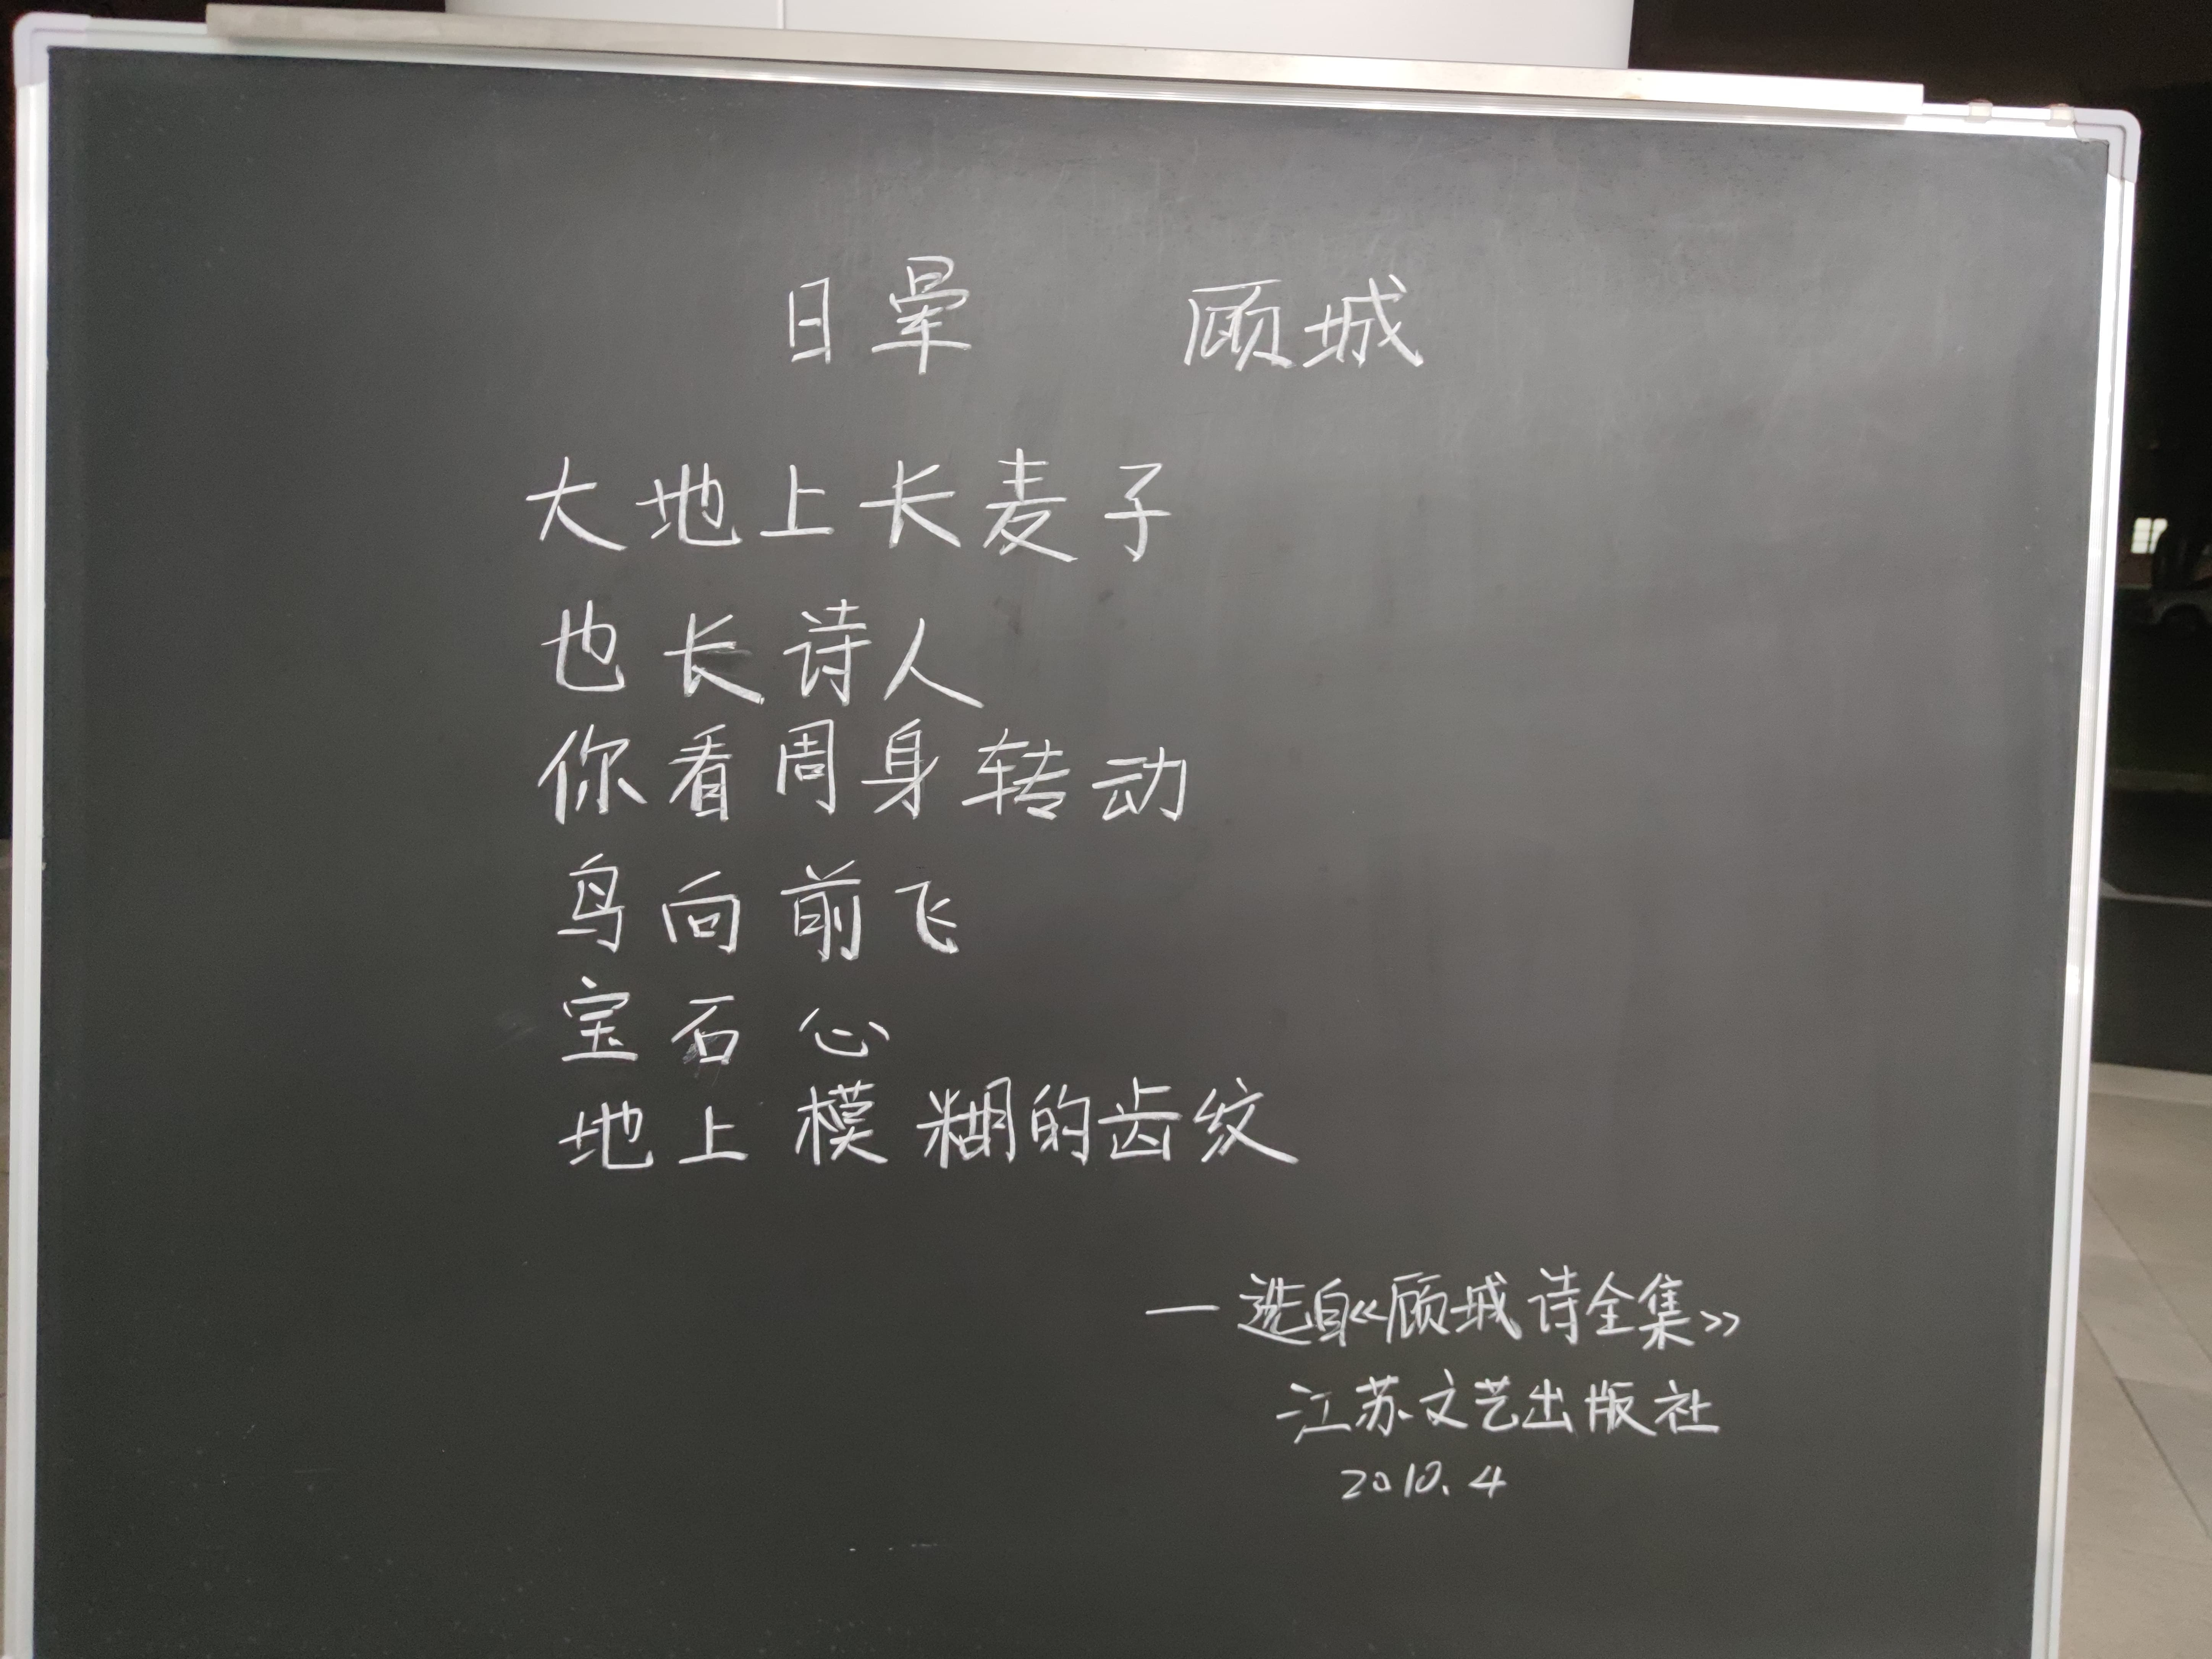 日晕 顾城
大地上长麦子
也长诗人
你看周身转动
鸟向前飞
宝石心
地上模糊的齿纹
—选自《顾城诗全集》
江苏文艺出版社
2010.4